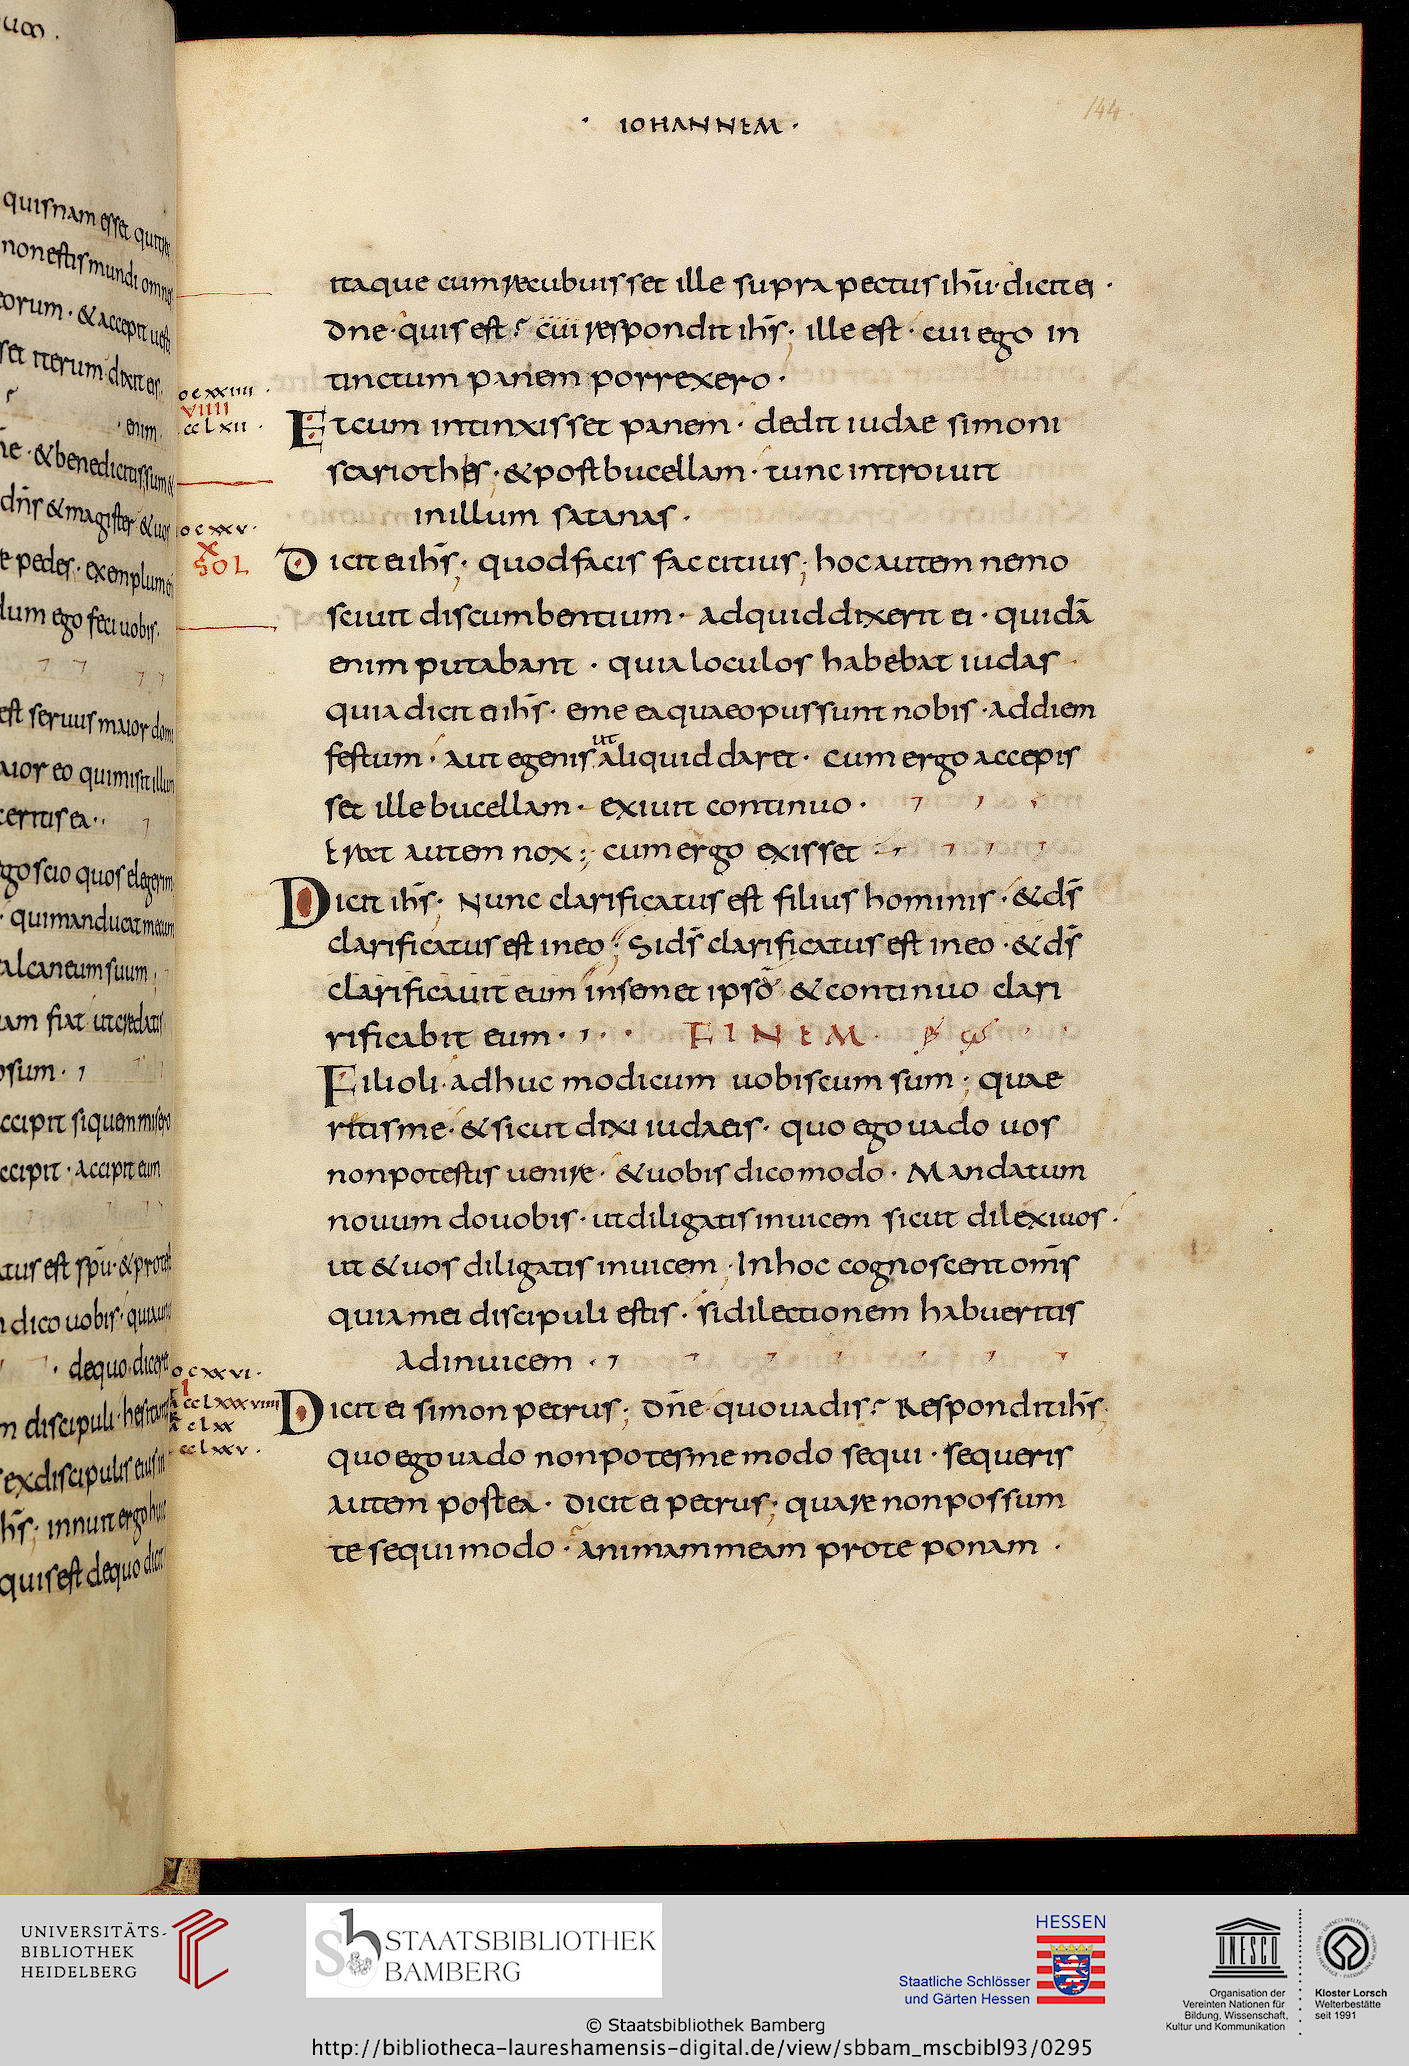 · IOHANNEM ·
144
itaque cum recubuisset ille supra pectus ihū· dicit ei ·
dne· quis est? cui respondit ihs̄; ille est · cui ego in
tinctum panem porrexero ·
Et cum intinxisset panem · dedit iudae simoni
scariothis · & post bucellam · tunc introiuit
in illum satanas ·
Dicit ei ihs̄; quod facis fac citius; hoc autem nemo
sciuit discumbentium · ad quid dixerit ei · quidā
enim putabant · quia loculos habebat iudas ·
quia dicit ei ihs̄· eme ea quae opus sunt nobis · ad diem
festum · aut egenis ut aliquid daret · cum ergo accepis
set ille bucellam · exiuit continuo ·
Erat autem nox; cum ergo exisset
Dicit ihs̄; Nunc clarificatus est filius hominis · & ds̄
clarificatus est in eo; Si ds̄ clarificatus est in eo · & ds̄
clarificauit eum in semet ipso · & continuo clari
rificabit eum · FINEM
Filioli· adhuc modicum uobiscum sum; quae
ritis me · & sicut dixi iudaeis · quo ego uado uos
non potestis uenire · & uobis dico modo · Mandatum
nouum do uobis · ut diligatis inuicem sicut dilexi uos ·
ut & uos diligatis inuicem · In hoc cognoscent om̄s
quia mei discipuli estis · si dilectionem habueritis
ad inuicem ·
Dicit ei simon petrus; Dn̄e· quo uadis? Respondit ihs̄;
quo ego uado non potes me modo sequi · sequeris
autem postea · Dicit ei petrus; quare non possum
te sequi modo · animam meam pro te ponam ·
o cxxiiii ·
VIIII
cclxii ·
o cxxv ·
X
SOL
o cxxvi ·
cclxxxviiii
clxx
cclxxv ·
quisnam esset qui
non estis mundi omnes
eorum · & accepit uest
set iterum dixit eis
enim
ne · & benedicitis sum &
dn̄s & magister & uos
e pedes · exemplum
dum ego feci uobis
est seruus maior dom
aior eo qui misit illum
ceritis ea ·
go scio quos elegerim
· qui manducat mecum
alcaneum suum ;
am fiat ut credatis
psum ·
ccipit si quem misero
ccipit · accipit eum
atus est spū · & protest
n dico uobis · quia
· de quo dicer
m discipuli · hesitant
ex discipulis eius in
ihs̄; innuit ergo huic
quis est de quo dicit
UNIVERSITÄTS-
BIBLIOTHEK
HEIDELBERG
sb
STAATSBIBLIOTHEK
BAMBERG
HESSEN
Staatliche Schlösser
und Gärten Hessen
UNESCO
Organisation der
Vereinten Nationen für
Bildung, Wissenschaft,
Kultur und Kommunikation
Kloster Lorsch
Welterbestätte
seit 1991
© Staatsbibliothek Bamberg
http://bibliotheca-laureshamensis-digital.de/view/sbbam_mscbibl93/0295